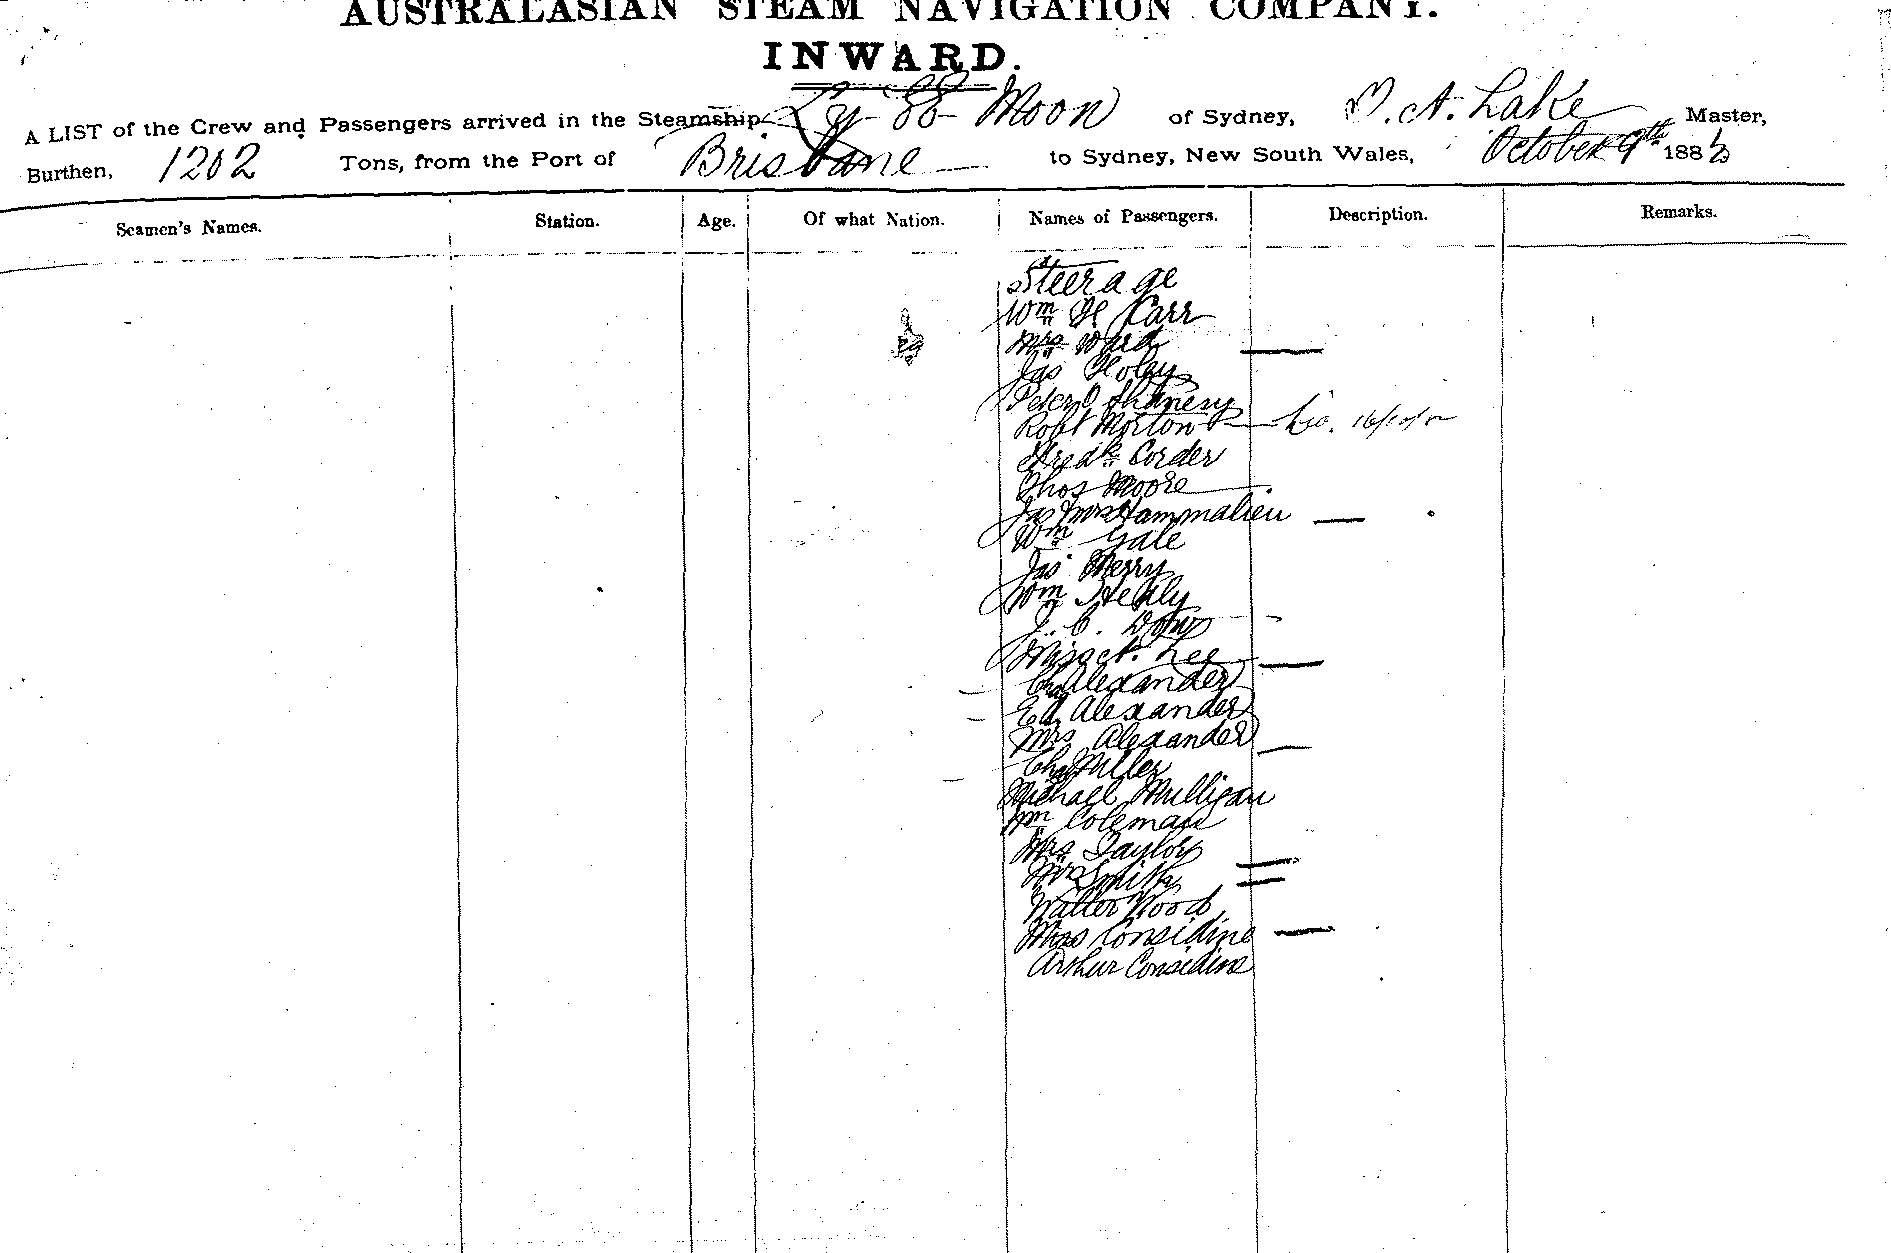 AUSTRALASIAN STEAM NAVIGATION COMPANY.
INWARD.
A LIST of the Crew and Passengers arrived in the Steamship Ly-EE-Moon of Sydney, A. Lake Master,
Burthen, 1202 Tons, from the Port of Brisbane to Sydney, New South Wales, October 9th 188
Seamen's Names. Station. Age. Of what Nation. Names of Passengers. Description. Remarks.
Steerage
Wm H Carr
Mrs Ward
Jas Foley
Peter
Robt Morton
Fredk Corder
Thos Moore
Jas Mrs
Wm Gale
Jas Merry
Wm Healy
J. C.
Miss A. Lee
Chas Alexander
Ed Alexander
Mrs Alexander
Chas Miller
Michael Mulligan
Wm Coleman
Mrs Taylor
Mrs Smith
Walter Wood
Mrs Considine
Arthur Considine